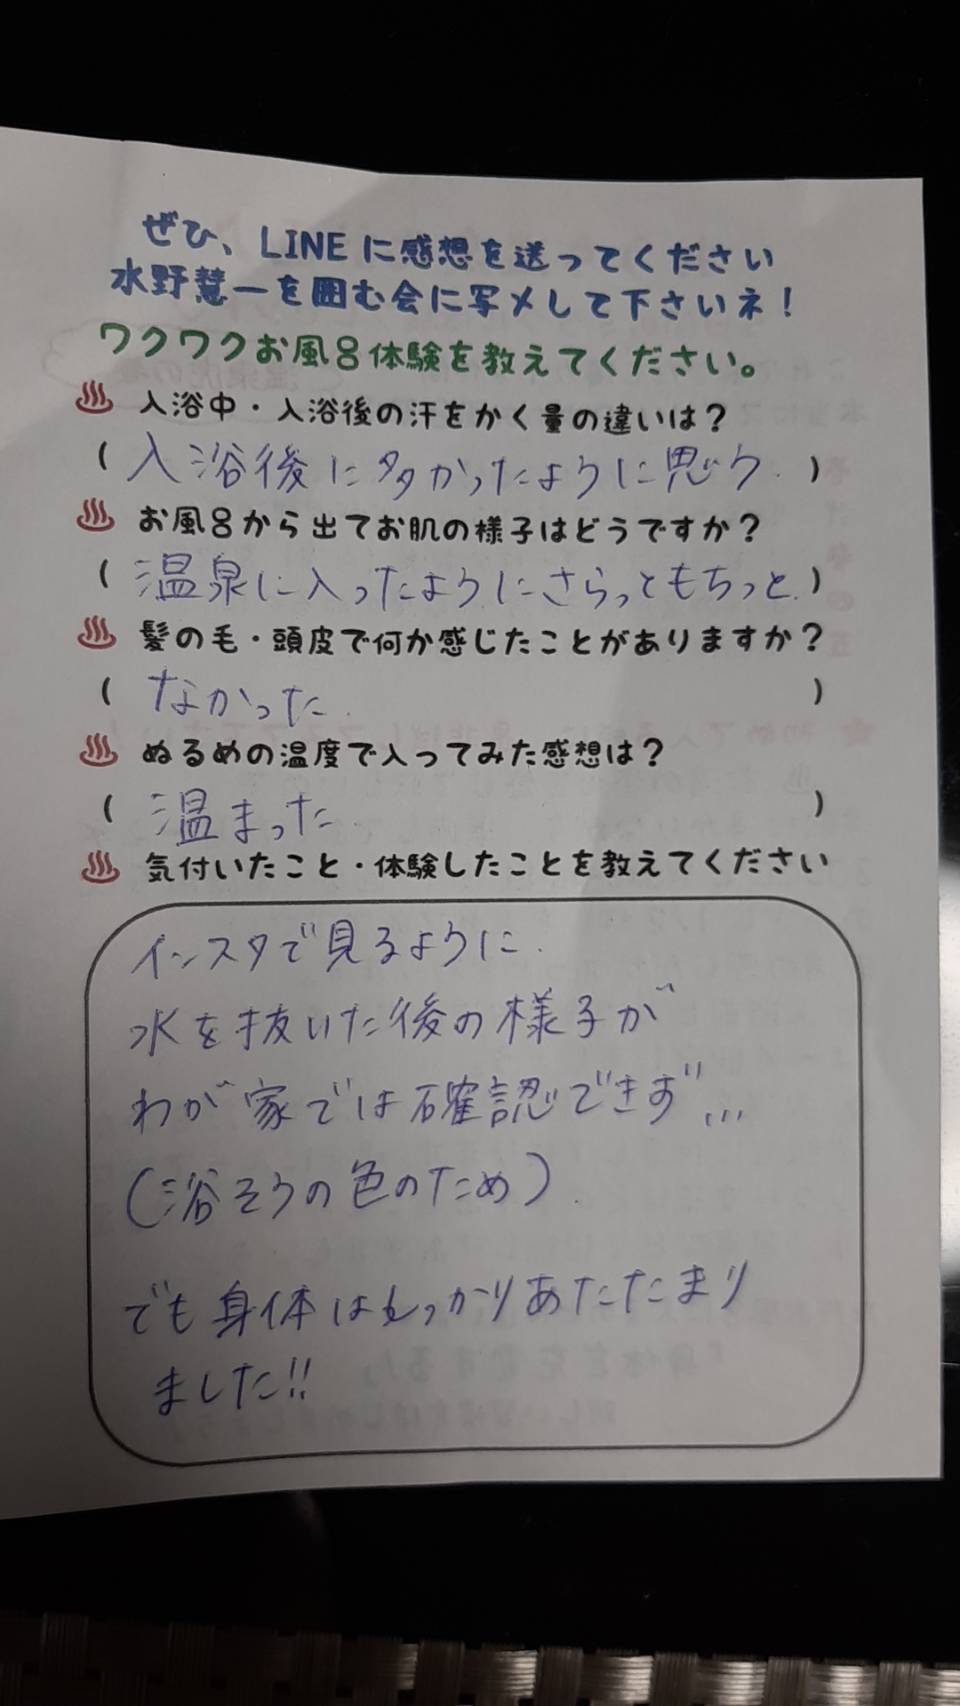 ぜひ、LINEに感想を送ってください
水野慧一を囲む会に写メして下さいネ！
ワクワクお風呂体験を教えてください。
入浴中・入浴後の汗をかく量の違いは？
(入浴後に多かったように思う.)
お風呂から出てお肌の様子はどうですか？
(温泉に入ったようにさらっともちっと.)
髪の毛・頭皮で何か感じたことがありますか？
(なかった.)
ぬるめの温度で入ってみた感想は？
(温まった.)
気付いたこと・体験したことを教えてください
インスタで見るように.
水を抜いた後の様子が
わが家では確認できず...
(浴そうの色のため).
でも身体はしっかりあたたまり
ました!!